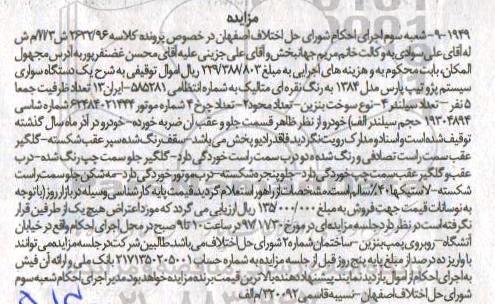 مزایده
۱۹۴۹-۹- شعبه سوم اجرای احکام شورای حل اختلاف اصفهان در خصوص پرونده کلاسه ۲۶۳۲/۹۶ ش ۳/ح/۷۷۳م ش
له آقای علی سوادی به وکالت خانم مریم جهانبخش و آقای علی جزینی علیه آقای محسن غضنفرپور به آدرس مجهول
المکان، بابت محکوم به و هزینه های اجرایی به مبلغ ۲۲۹/۳۸۸/۸۰۳ ریال اموال توقیفی به شرح یک دستگاه سواری
سیستم پژو تیپ پارس مدل ۱۳۸۴ به رنگ نقره ای متالیک به شماره انتظامی ۵۸۵-۲۸۱ ایران ۱۳ تعداد ظرفیت جمعا
۵ نفر - تعداد سیلندر ۴ - نوع سوخت بنزین - تعداد محور ۲ - تعداد چرخ ۴ شماره موتور ۱۲۴۸۴۰۲۱۴۴۴ شماره شاسی
۱۹۳۰۴۸۹۴ حجم سیلندر (لف) خودرو از نظر ظاهر قسمت جلو و عقب آن ضربه خورده - خودرو در آذر ماه سال گذشته
توقیف شده است و اسناد و مدارک رویت نگردید فاقد رادیو پخش می باشد - سقف رنگ شده سپر عقب شکسته - گلگیر
عقب سمت راست تصادفی و رنگ شده دو درب سمت راست خوردگی دارد - گلگیر جلو سمت چپ رنگ شده - درب
عقب و گلگیر عقب سمت چپ خوردگی دارد - جلو پنجره شکسته - درب موتور خوردگی دارد - مه شکن جلو سمت راست
شکسته - لاستیکها ۴۰٪ سالم است. مشخصات از راهور استعلام گردید. قیمت پایه کارشناسی وسیله در بازار روز (با توجه
به نوسانات قیمت جهت فروش به مبلغ ۱۳۵/۰۰۰/۰۰۰ ریال ارزیابی می گردد که مورد اعتراض هیچ یک از طرفین قرار
نگرفته است در نظر دارد جلسه مزایده ای در مورخ ۹۷/۱۷/۳۰ در ساعت ۱۰ تا ۹ صبح در محل اجرای احکام واقع در خیابان
آتشگاه - روبروی پمپ بنزین - ساختمان شماره ۲ شورای حل اختلاف می باشد. طالبین شرکت در جلسه مزایده می توانند
با واریز ده درصد از مبلغ پایه پنج روز قبل از جلسه مزایده به شماره حساب ۲۱۷۱۳۵۰۲۰۵۰۰۱ بانک ملی و ارائه آن فیش
به اجرای احکام از اموال بازدید نمایند پیشنهاد دهنده بالاترین قیمت برنده مزایده خواهد بود مدیر اجرای احکام شعبه سوم
شورای حل اختلاف اصفهان - نسیبه قاسمی ۳۲۰۰۹۲/م الف